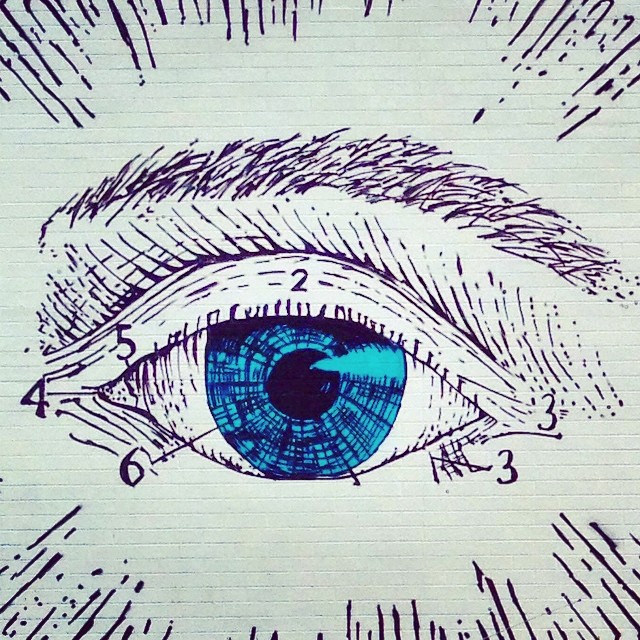 2
5
4
3
6
3